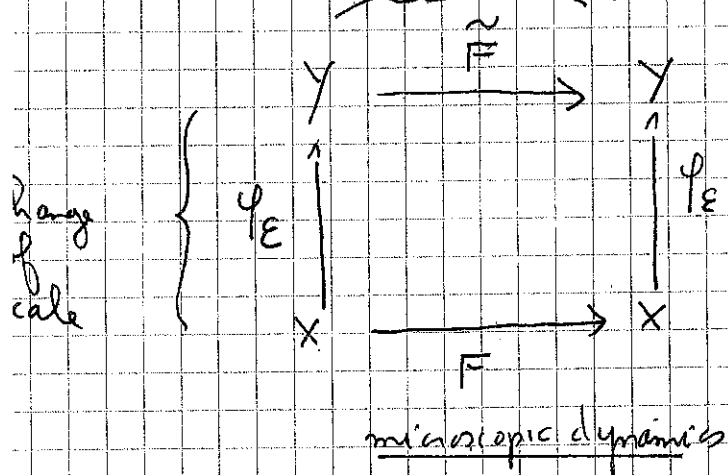 F̃
Y Y
hange
of
cale
φ_ε φ_ε
X X
F
microscopic dynamics